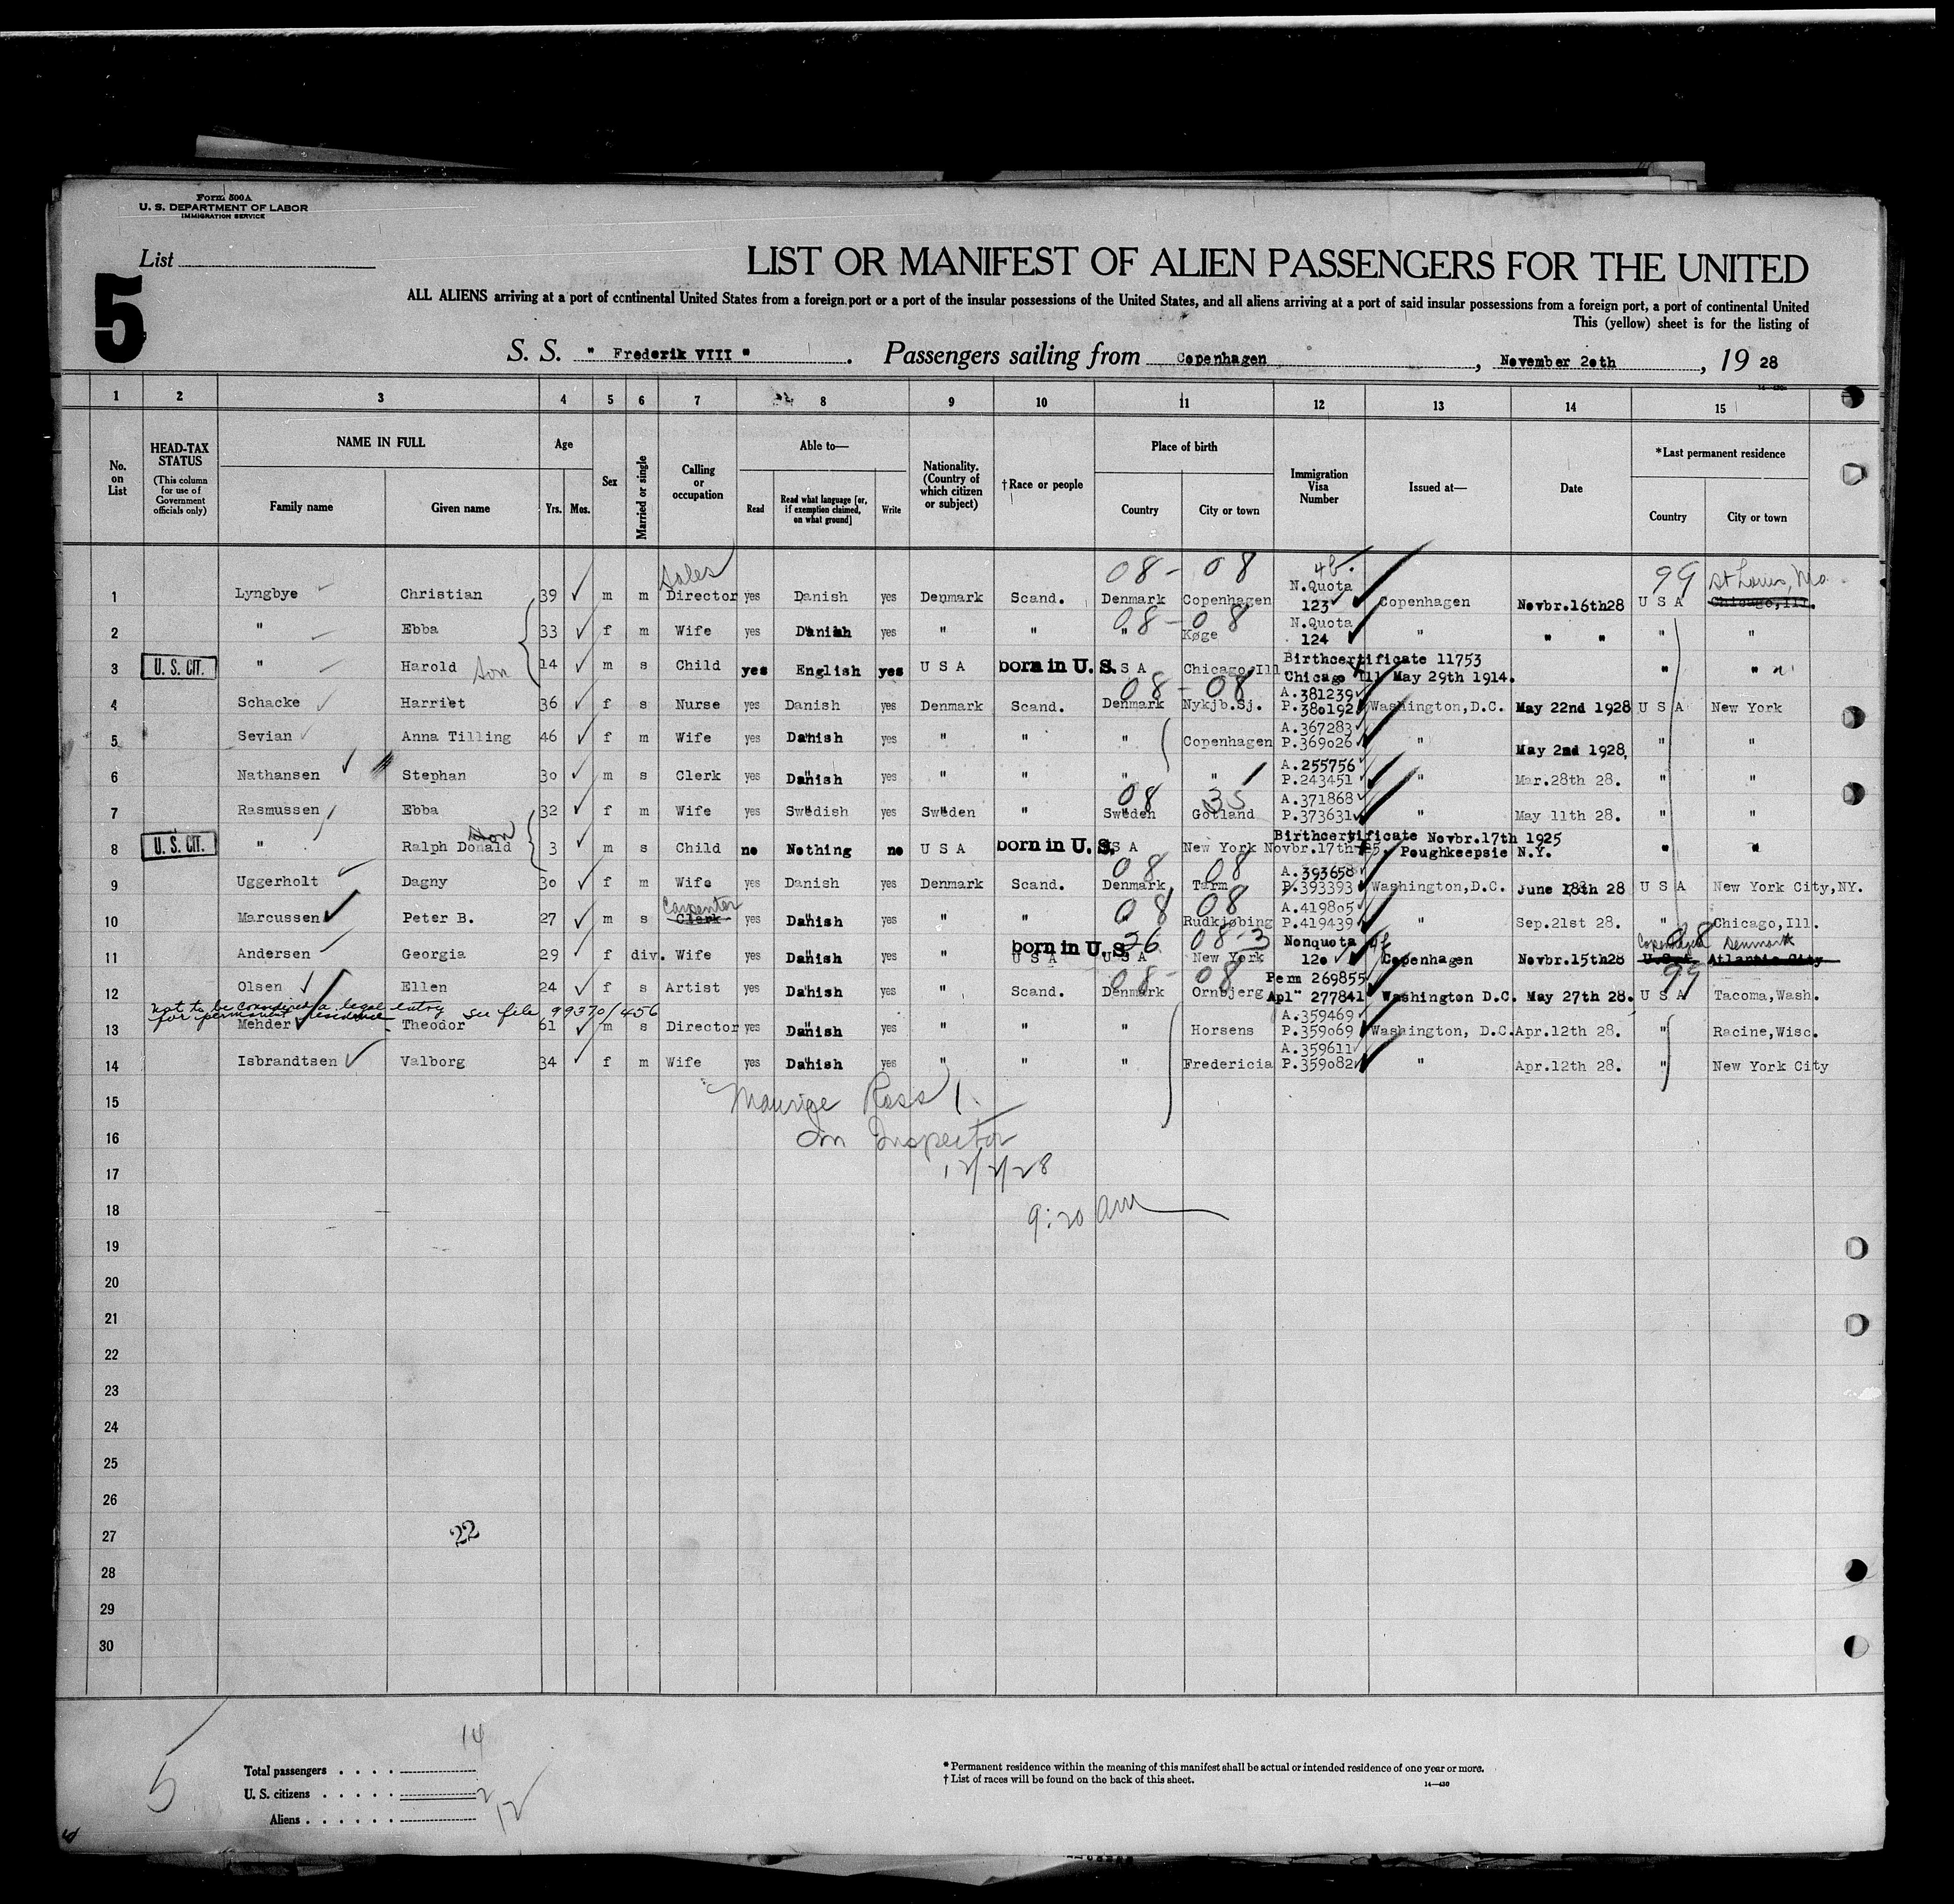 Form 500A
U. S. DEPARTMENT OF LABOR
IMMIGRATION SERVICE
List
5
LIST OR MANIFEST OF ALIEN PASSENGERS FOR THE UNITED
ALL ALIENS arriving at a port of continental United States from a foreign port or a port of the insular possessions of the United States, and all aliens arriving at a port of said insular possessions from a foreign port, a port of continental United
This (yellow) sheet is for the listing of
S. S. " Frederik VIII ". Passengers sailing from Copenhagen, November 2oth, 19 28
1 2 3 4 5 6 7 8 9 10 11 12 13 14 15
No. on List
HEAD-TAX STATUS (This column for use of Government officials only)
NAME IN FULL Family name Given name
Age Yrs. Mos.
Sex
Married or single
Calling or occupation
Able to— Read Read what language [or, if exemption claimed, on what ground] Write
Nationality. (Country of which citizen or subject)
†Race or people
Place of birth Country City or town
Immigration Visa Number
Issued at—
Date
*Last permanent residence Country City or town
Sales 08 - 08 4b. 99 St Louis, Mo
1 Lyngbye Christian 39 m m Director yes Danish Denmark Scand. Denmark Copenhagen N.Quota 123 Copenhagen Novbr.16th28 U S A Chicago,Ill.
08 - 08
2 " Ebba 33 f m Wife yes Danish yes " " " Køge N.Quota 124 " " " " "
3 U. S. CIT. " Harold Son 14 m s Child yes English yes U S A born in U. S. S A Chicago,Ill Birthcertificate 11753 Chicago Ill May 29th 1914. " " "
08 - 08
4 Schacke Harriet 36 f s Nurse yes Danish yes Denmark Scand. Denmark Nykjb.Sj. A.381239 P.380192 Washington,D.C. May 22nd 1928 U S A New York
5 Sevian Anna Tilling 46 f m Wife yes Danish yes " " " Copenhagen A.367283 P.369026 " May 2nd 1928, " "
6 Nathansen Stephan 3o m s Clerk yes Danish yes " " " " A.255756 P.243451 " Mar.28th 28. " "
08 35
7 Rasmussen Ebba 32 f m Wife yes Swedish yes Sweden " Sweden Gotland A.371868 P.373631 " May 11th 28. " "
8 U. S. CIT. " Ralph Donald Son 3 m s Child no Nothing no U S A born in U. S. S A New York Novbr.17th 25. Birthcertificate Novbr.17th 1925 Poughkeepsie N.Y. " "
08 08
9 Uggerholt Dagny 3o f m Wife yes Danish yes Denmark Scand. Denmark Tarm A.393658 P.393393 Washington,D.C. June 18th 28 U S A New York City,NY.
Carpenter 08 08
10 Marcussen Peter B. 27 m s Clerk yes Danish yes " " " Rudkjøbing A.419805 P.419439 " Sep.21st 28. " Chicago,Ill.
born in U. S. 26 08-3 08 Copenhagen Denmark
11 Andersen Georgia 29 f div. Wife yes Danish yes " U S A U S A New York Nonquota 12o Copenhagen Novbr.15th28 U.S.A. Atlantic City
08 - 08 99
12 Olsen Ellen 24 f s Artist yes Danish yes " Scand. Denmark Ornbjerg Perm 269855 Apl" 277841 Washington D.C. May 27th 28. U S A Tacoma,Wash.
Not to be considered a legal entry
for permanent residence see file 99370/456
13 Mehder Theodor 61 m s Director yes Danish yes " " " Horsens A.359469 P.359069 Washington, D.C. Apr.12th 28. " Racine,Wisc.
14 Isbrandtsen Valborg 34 f m Wife yes Danish yes " " " Fredericia A.359611 P.359082 " Apr.12th 28. " New York City
15 Maurice Ross
16 Im Inspector
17 12/2/28
18 9:20 am
19
20
21
22
23
24
25
26
27 22
28
29
30
14
Total passengers
U. S. citizens 2
Aliens 12
5
* Permanent residence within the meaning of this manifest shall be actual or intended residence of one year or more.
† List of races will be found on the back of this sheet.
14—430